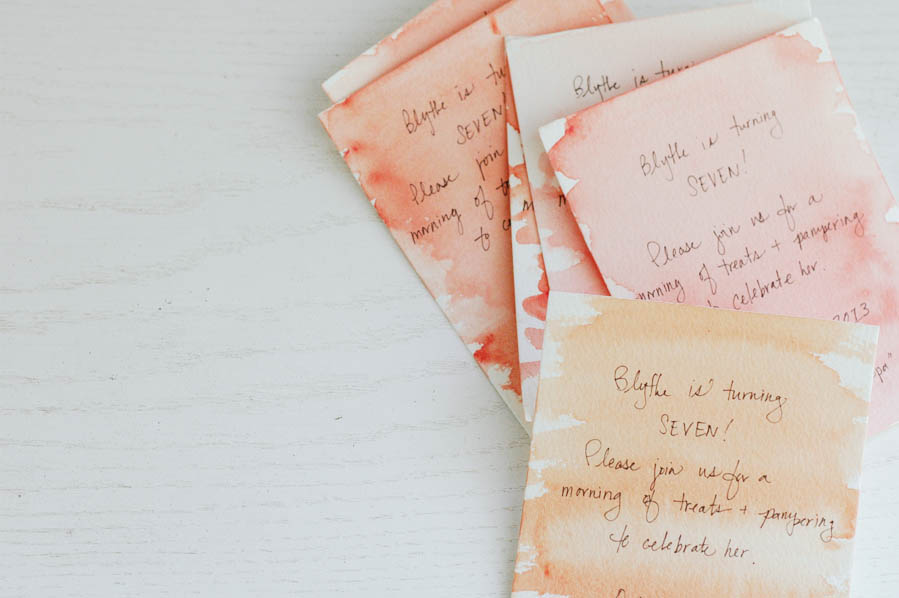 Blythe is tu
SEVEN!
Please join
morning of t
to c
Blythe is turn
Blythe is turning
SEVEN!
Please join us for a
morning of treats + pampering
to celebrate her.
2023
pa"
Blythe is turning
SEVEN!
Please join us for a
morning of treats + pampering
to celebrate her.